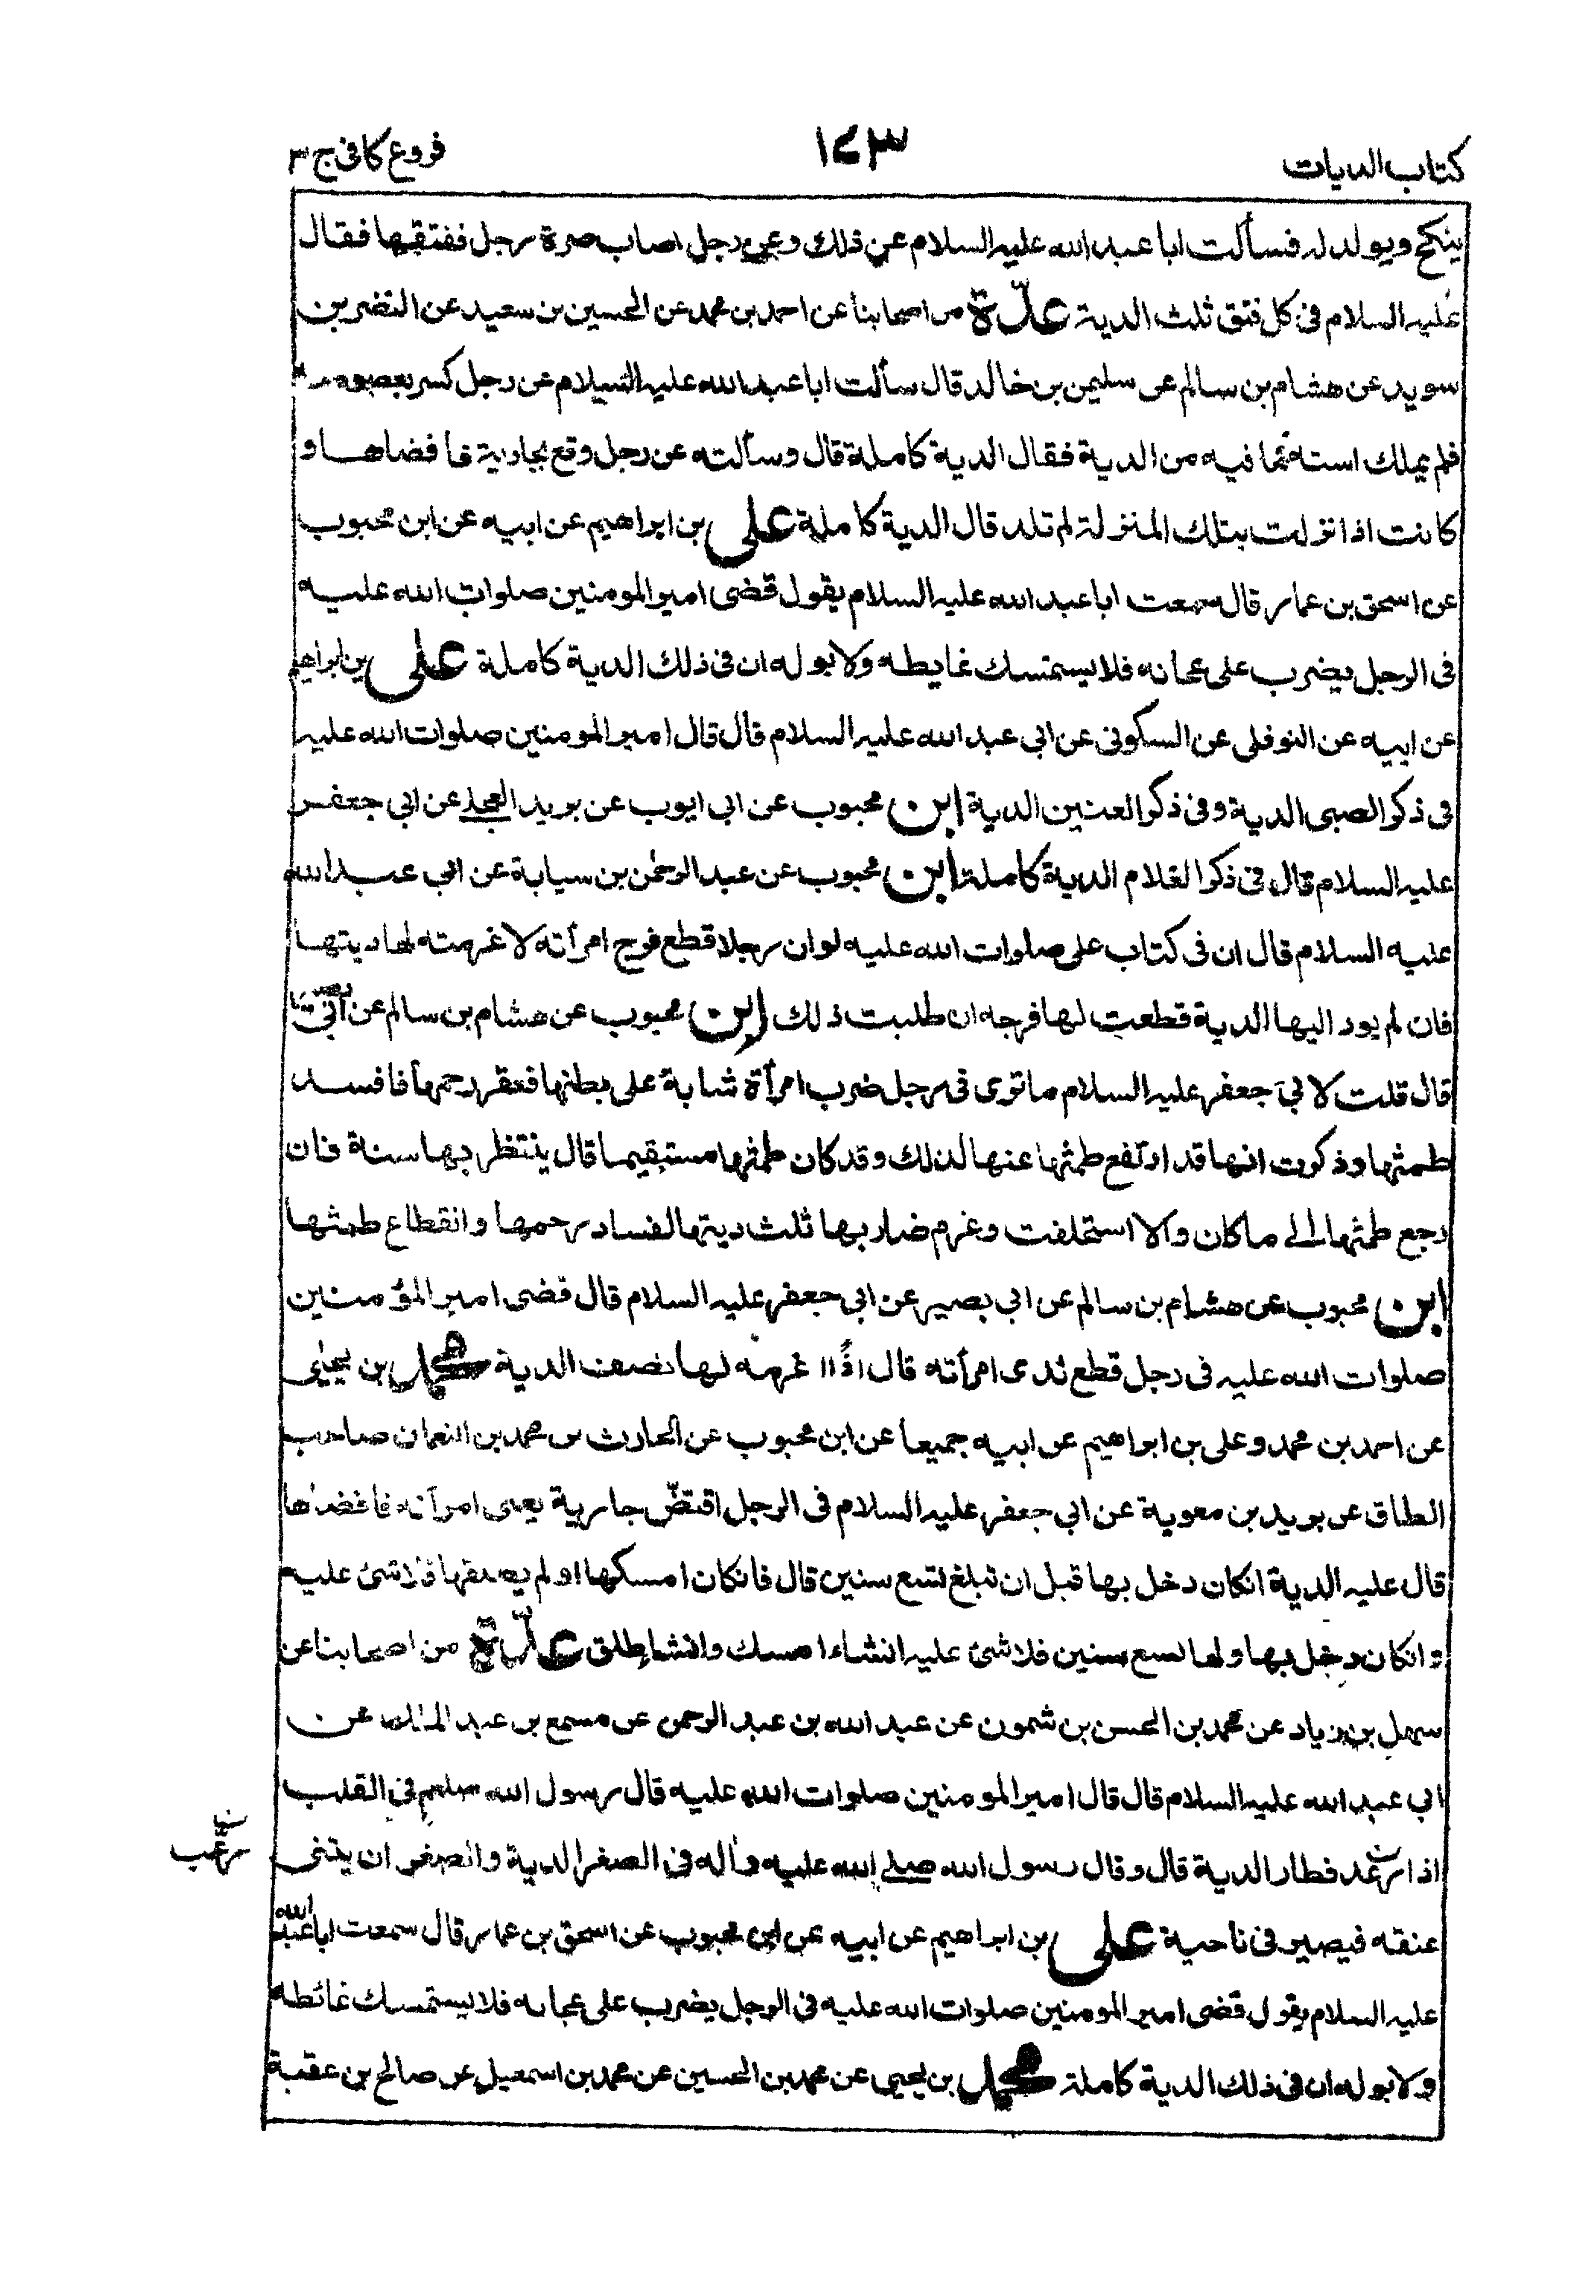 كتاب الديات
١٤٣
فروع كافى ج ٣
ينكح ويولد له فسألت ابا عبد الله عليه السلام عن ذلك وعن رجل اصاب صرة رجل ففتقها فقال
عليه السلام فى كل فتق ثلث الدية عدّة من اصحابنا عن احمد بن محمد عن الحسين بن سعيد عن النضر بن
سويد عن هشام بن سالم عن سليمن بن خالد قال سألت ابا عبد الله عليه السلام عن رجل كسر بعصوصه
فلم يملك استه فما فيه من الدية فقال الدية كاملة قال وسألته عن رجل وقع بجارية فافضاها و
كانت اذا نزلت بتلك المنزلة لم تلد قال الدية كاملة على بن ابراهيم عن ابيه عن ابن محبوب
عن اسحق بن عمار قال سمعت ابا عبد الله عليه السلام يقول قضى امير المومنين صلوات الله عليه
فى الرجل يضرب على عجانه فلا يستمسك غايطه ولا بوله ان فى ذلك الدية كاملة على بن ابراهيم
عن ابيه عن النوفلى عن السكونى عن ابى عبد الله عليه السلام قال قال امير المومنين صلوات الله عليه
فى ذكر الصبى الدية وفى ذكر العنين الدية ابن محبوب عن ابى ايوب عن بريد العجلى عن ابى جعفر
عليه السلام قال فى ذكر الغلام الدية كاملة ابن محبوب عن عبد الرحمن بن سيابة عن ابى عبد الله
عليه السلام قال ان فى كتاب على صلوات الله عليه لو ان رجلا قطع فرج امرأته لاغرمته لها ديتها
فان لم يود اليها الدية قطعت لها فرجه ان طلبت ذلك ابن محبوب عن هشام بن سالم عن ابى بصير
قال قلت لابى جعفر عليه السلام ما ترى فى رجل ضرب امرأة شابة على بطنها فعقر رحمها فافسد
طمثها وذكرت انها قد ارتفع طمثها عنها لذلك وقد كان طمثها مستقيما قال ينتظر بها سنة فان
رجع طمثها الى ما كان والا استحلفت وغرم ضاربها ثلث ديتها لفساد رحمها وانقطاع طمثها
ابن محبوب عن هشام بن سالم عن ابى بصير عن ابى جعفر عليه السلام قال قضى امير المؤمنين
صلوات الله عليه فى رجل قطع ثدى امرأته قال اذًا اغرمه لها نصف الدية محمد بن يحيى
عن احمد بن محمد وعلى بن ابراهيم عن ابيه جميعا عن ابن محبوب عن الحارث بن محمد بن النعمان صاحب
الطاق عن بريد بن معوية عن ابى جعفر عليه السلام فى الرجل اقتضّ جارية يعنى امرأته فافضاها
قال عليه الدية انكان دخل بها قبل ان تبلغ تسع سنين قال فانكان امسكها ولم يطلقها فلا شئ عليه
وانكان دخل بها ولها تسع سنين فلا شئ عليه انشاء امسك وانشا طلق عدّة من اصحابنا عن
سهل بن زياد عن محمد بن الحسن بن شمون عن عبد الله بن عبد الرحمن عن مسمع بن عبد الملك عن
ابى عبد الله عليه السلام قال قال امير المومنين صلوات الله عليه قال رسول الله صلعم فى القلب
اذا ارعد فطار الدية قال وقال رسول الله صلى الله عليه وآله فى الصعر الدية والصعر ان يثنى
عنقه فيصير فى ناحية على بن ابراهيم عن ابيه عن ابن محبوب عن اسحق بن عمار قال سمعت ابا عبد الله
عليه السلام يقول قضى امير المومنين صلوات الله عليه فى الرجل يضرب على عجانه فلا يستمسك غائطه
ولا بوله ان فى ذلك الدية كاملة محمد بن يحيى عن محمد بن الحسين عن محمد بن اسمعيل عن صالح بن عقبة